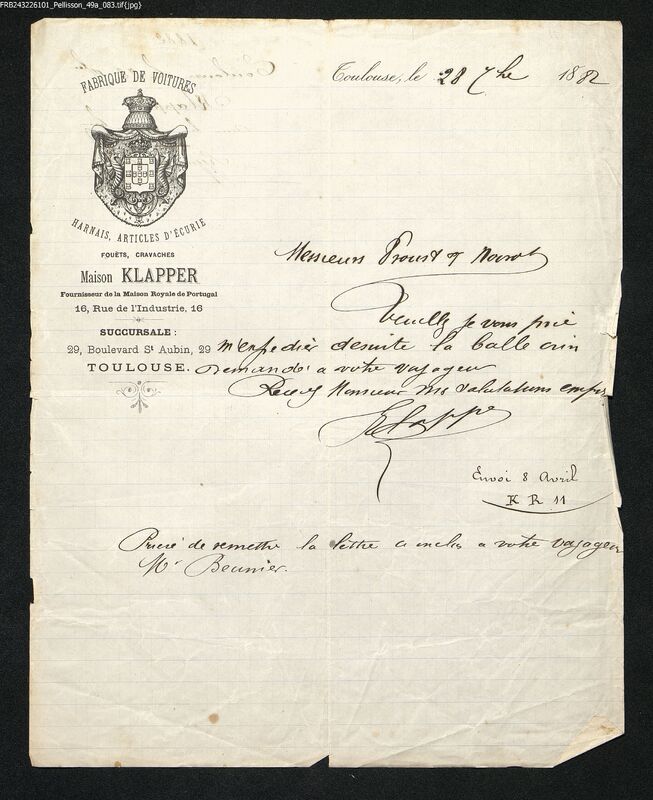 FRB243226101_Pellisson_49a_083.tif{jpg}
FABRIQUE DE VOITURES
HARNAIS, ARTICLES D'ÉCURIE
FOUËTS, CRAVACHES
Maison KLAPPER
Fournisseur de la Maison Royale de Portugal
16, Rue de l'Industrie, 16
SUCCURSALE :
29, Boulevard St Aubin, 29
TOULOUSE.
Toulouse, le 28 7bre 1882
Messieurs Proust & Noirot
Veuillez je vous prie
m'expedier desuite la balle crin
demandé a votre voyageur
Recevez Monsieur mes salutations empres
Klapper
Envoi 8 Avril
K R 11
Prière de remettre la lettre ci inclus a votre voyageur
Mr Beunier.